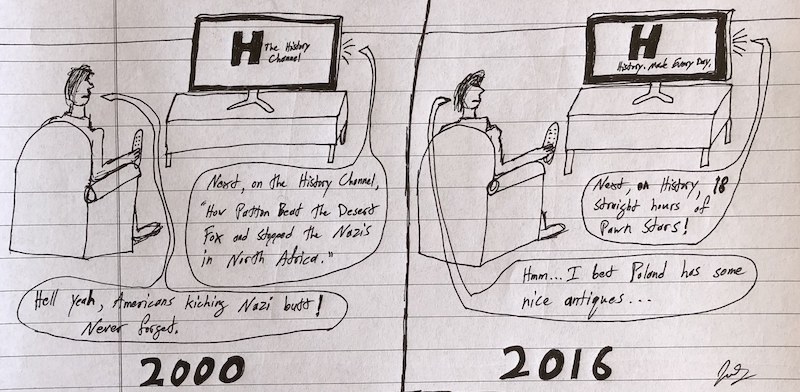 H The History
Channel
Next, on the History Channel,
"How Patton Beat the Desert
Fox and stopped the Nazis
in North Africa."
Hell yeah, Americans kicking Nazi butt!
Never forget.
2000
H
History. Made Every Day.
Next, on History, 18
straight hours of
Pawn Stars!
Hmm... I bet Poland has some
nice antiques...
2016